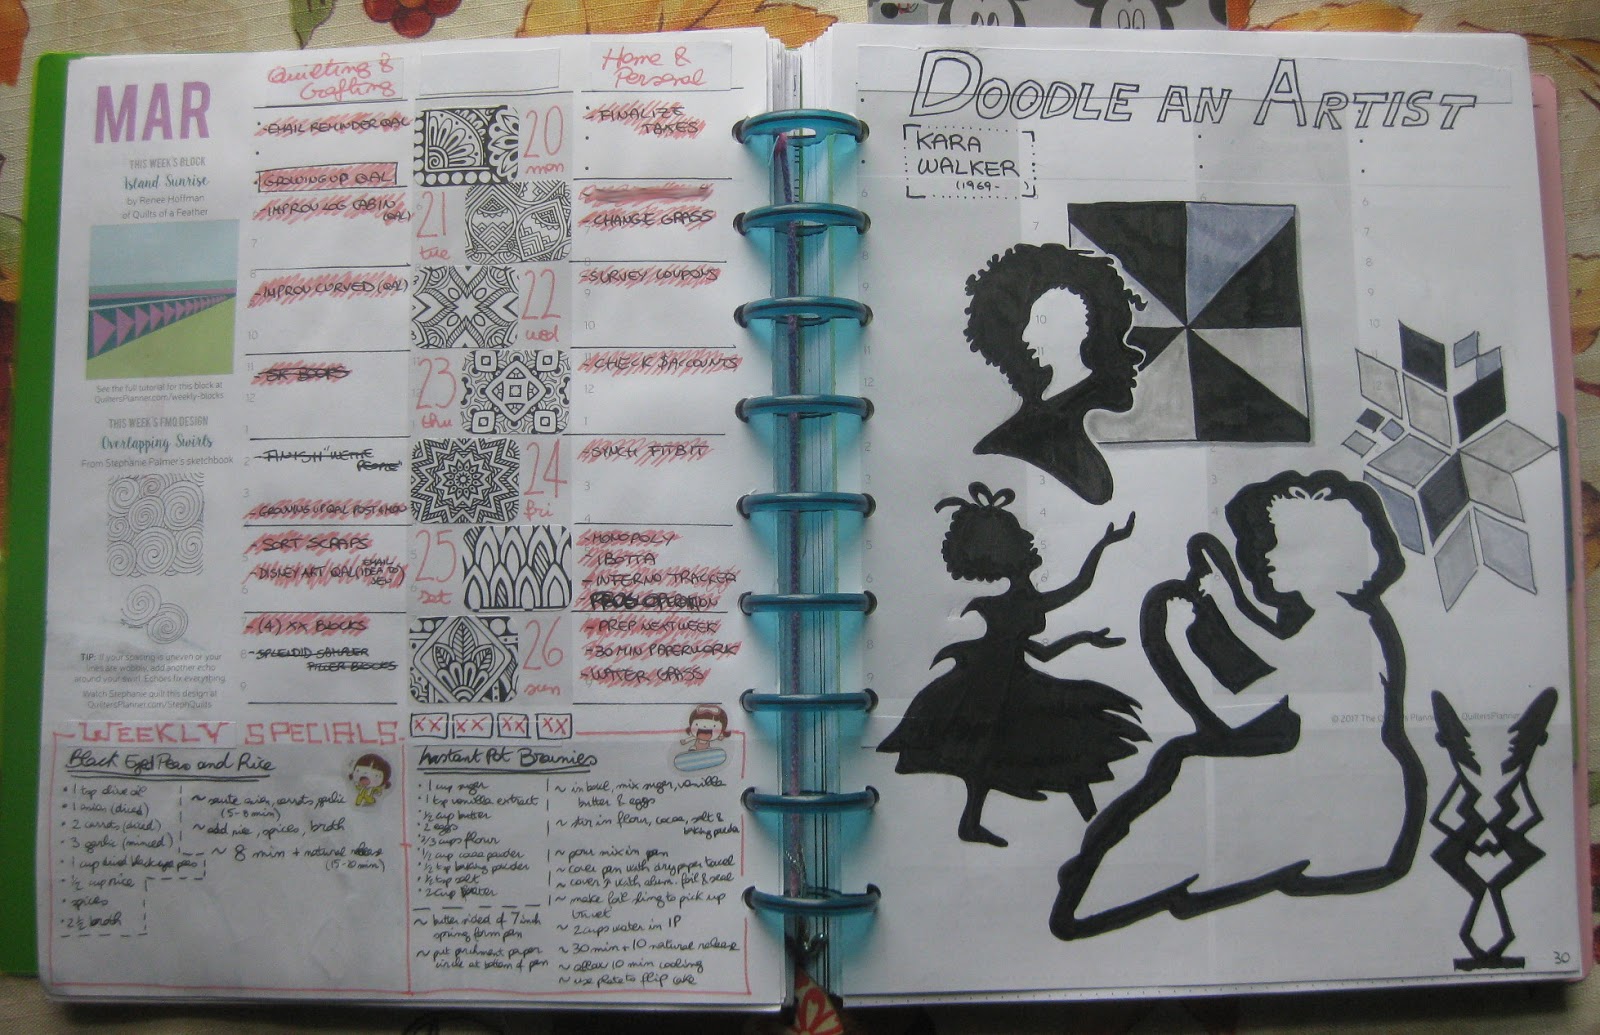 MAR
THIS WEEK'S BLOCK
Island Sunrise
by Renee Hoffman
of Quilts of a Feather
See the full tutorial for this block at
QuiltersPlanner.com/weekly-blocks
THIS WEEK'S FMQ DESIGN
Overlapping Swirls
From Stephanie Palmer's sketchbook
TIP: If your spacing is uneven or your
lines are wobbly, add another echo
around your swirl. Echoes fix everything.
Watch Stephanie quilt this design at
QuiltersPlanner.com/StephQuilts
Quilting &
Crafting
- EMAIL REMINDER QAL
GROWING UP QAL
- IMPROV LOG CABIN
(QAL)
- IMPROV CURVED (QAL)
BOOKS
- FINISH "WE THE
PEOPLE"
- GROWING UP QAL POST
- SORT SCRAPS
- DISNEY ART QAL (EMAIL
IDEA TO
- (4) XX BLOCKS
- SPLENDID SAMPLER
FILLER BLOCKS
20
mon
21
tue
22
wed
23
thu
24
fri
25
sat
26
sun
Home &
Personal
- FINALIZE
TAXES
- CHANGE GRASS
- SURVEY COUPONS
- CHECK $ ACCOUNTS
- SYNCH FITBIT
- MONOPOLY
- IBOTTA
- INFERNO TRACKER
OPERATION
- PREP NEXT WEEK
- 30 MIN PAPERWORK
- WATER GRASS
WEEKLY SPECIALS
XX XX XX XX
Black Eyed Peas and Rice
• 1 tsp olive oil
• 1 onion (diced)
• 2 carrots (diced)
• 3 garlic (minced)
• 1 cup dried black eye peas
• 1/2 cup rice
• spices
• 2 1/2 broth
~ saute onion, carrots, garlic
(5-8 min)
~ add rice, spices, broth
~ 8 min + natural release
(15-20 min)
Instant Pot Brownies
• 1 cup sugar
• 1 tsp vanilla extract
• 1/2 cup butter
• 2 eggs
• 2/3 cups flour
• 1/2 cup cocoa powder
• 1/2 tsp baking powder
• 1/4 tsp salt
• 2 cup water
~ butter sided of 7 inch
spring form pan
~ put parchment paper
circle at bottom of pan
~ in bowl, mix sugar, vanilla
butter & eggs
~ stir in flour, cocoa, salt &
baking powder
~ pour mix in pan
~ cover pan with dry paper towel
~ cover with alum. foil & seal
~ make foil sling to pick up
trivet
~ 2 cups water in IP
~ 30 min + 10 natural release
~ allow 10 min cooling
~ use plate to flip cake
DOODLE AN ARTIST
KARA
WALKER
(1969-
© 2017 The Quilter's Planner
QuiltersPlanner
30